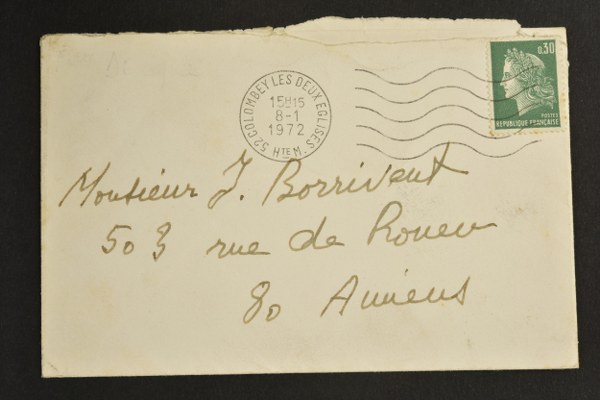 52 COLOMBEY LES DEUX EGLISES
HTE M.
15H15
8-1
1972
0,30
POSTES
REPUBLIQUE FRANÇAISE
Monsieur J. Borrivent
503 rue de Rouen
80 Amiens